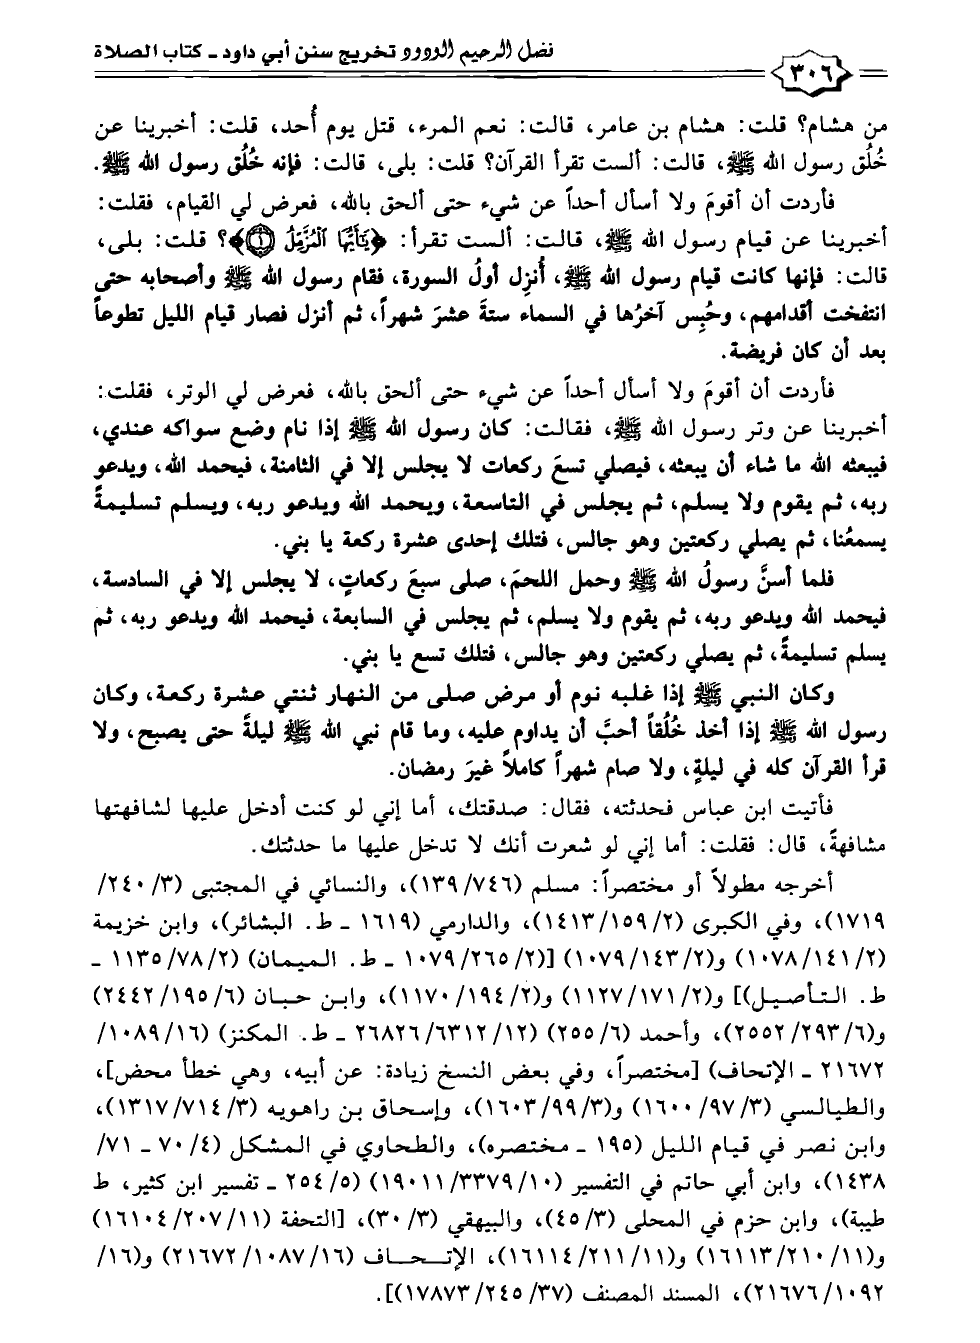 فضل الرحيم الودود تخريج سنن أبي داود - كتاب الصلاة
٣٠٦
من هشام؟ قلت: هشام بن عامر، قالت: نعم المرء، قتل يوم أُحد، قلت: أخبرينا عن
خُلُق رسول الله ﷺ، قالت: ألست تقرأ القرآن؟ قلت: بلى، قالت: فإنه خُلُق رسول الله ﷺ.
فأردت أن أقومَ ولا أسأل أحداً عن شيء حتى ألحق بالله، فعرض لي القيام، فقلت:
أخبرينا عن قيام رسول الله ﷺ، قالت: ألست تقرأ: ﴿يَٰٓأَيُّهَا ٱلْمُزَّمِّلُ ۝١﴾؟ قلت: بلى،
قالت: فإنها كانت قيام رسول الله ﷺ، أُنزِل أولُ السورة، فقام رسول الله ﷺ وأصحابه حتى
انتفخت أقدامهم، وحُبِس آخرُها في السماء ستةَ عشرَ شهراً، ثم أنزل فصار قيام الليل تطوعاً
بعد أن كان فريضة.
فأردت أن أقومَ ولا أسأل أحداً عن شيء حتى ألحق بالله، فعرض لي الوتر، فقلت:
أخبرينا عن وتر رسول الله ﷺ، فقالت: كان رسول الله ﷺ إذا نام وضع سواكه عندي،
فيبعثه الله ما شاء أن يبعثه، فيصلي تسعَ ركعات لا يجلس إلا في الثامنة، فيحمد الله، ويدعو
ربه، ثم يقوم ولا يسلم، ثم يجلس في التاسعة، ويحمد الله ويدعو ربه، ويسلم تسليمةً
يسمعُنا، ثم يصلي ركعتين وهو جالس، فتلك إحدى عشرة ركعة يا بني.
فلما أسنَّ رسولُ الله ﷺ وحمل اللحمَ، صلى سبعَ ركعاتٍ، لا يجلس إلا في السادسة،
فيحمد الله ويدعو ربه، ثم يقوم ولا يسلم، ثم يجلس في السابعة، فيحمد الله ويدعو ربه، ثم
يسلم تسليمةً، ثم يصلي ركعتين وهو جالس، فتلك تسع يا بني.
وكان النبي ﷺ إذا غلبه نوم أو مرض صلى من النهار ثنتي عشرة ركعة، وكان
رسول الله ﷺ إذا أخذ خُلُقاً أحبَّ أن يداوم عليه، وما قام نبي الله ﷺ ليلةً حتى يصبح، ولا
قرأ القرآن كله في ليلةٍ، ولا صام شهراً كاملاً غيرَ رمضان.
فأتيت ابن عباس فحدثته، فقال: صدقتك، أما إني لو كنت أدخل عليها لشافهتها
مشافهةً، قال: فقلت: أما إني لو شعرت أنك لا تدخل عليها ما حدثتك.
أخرجه مطولاً أو مختصراً: مسلم (١٣٩/٧٤٦)، والنسائي في المجتبى (٣/ ٢٤٠/
١٧١٩)، وفي الكبرى (٢/ ١٥٩/ ١٤١٣)، والدارمي (١٦١٩ - ط. البشائر)، وابن خزيمة
(٢/ ١٤١/ ١٠٧٨) و(٢/ ١٤٣/ ١٠٧٩) [(٢/ ٢٦٥/ ١٠٧٩ - ط. الميمان) (٢/ ٧٨/ ١١٣٥ -
ط. التأصيل)] و(٢/ ١٧١/ ١١٢٧) و(٢/ ١٩٤/ ١١٧٠)، وابن حبان (٦/ ١٩٥/ ٢٤٤٢)
و(٦/ ٢٩٣/ ٢٥٥٢)، وأحمد (٦/ ٢٥٥) (١٢/ ٦٣١٢/ ٢٦٨٢٦ - ط. المكنز) (١٦/ ١٠٨٩/
٢١٦٧٢ - الإتحاف) [مختصراً، وفي بعض النسخ زيادة: عن أبيه، وهي خطأ محض]،
والطيالسي (٣/ ٩٧/ ١٦٠٠) و(٣/ ٩٩/ ١٦٠٣)، وإسحاق بن راهويه (٣/ ٧١٤/ ١٣١٧)،
وابن نصر في قيام الليل (١٩٥ - مختصره)، والطحاوي في المشكل (٤/ ٧٠ - ٧١/
١٤٣٨)، وابن أبي حاتم في التفسير (١٠/ ٣٣٧٩/ ١٩٠١١) (٥/ ٢٥٤ - تفسير ابن كثير، ط
طيبة)، وابن حزم في المحلى (٣/ ٤٥)، والبيهقي (٣/ ٣٠)، [التحفة (١١/ ٢٠٧/ ١٦١٠٤)
و(١١/ ٢١٠/ ١٦١١٣) و(١١/ ٢١١/ ١٦١١٤)، الإتـحـاف (١٦/ ١٠٨٧/ ٢١٦٧٢) و(١٦/
١٠٩٢/ ٢١٦٧٦)، المسند المصنف (٣٧/ ٢٤٥/ ١٧٨٧٣)].